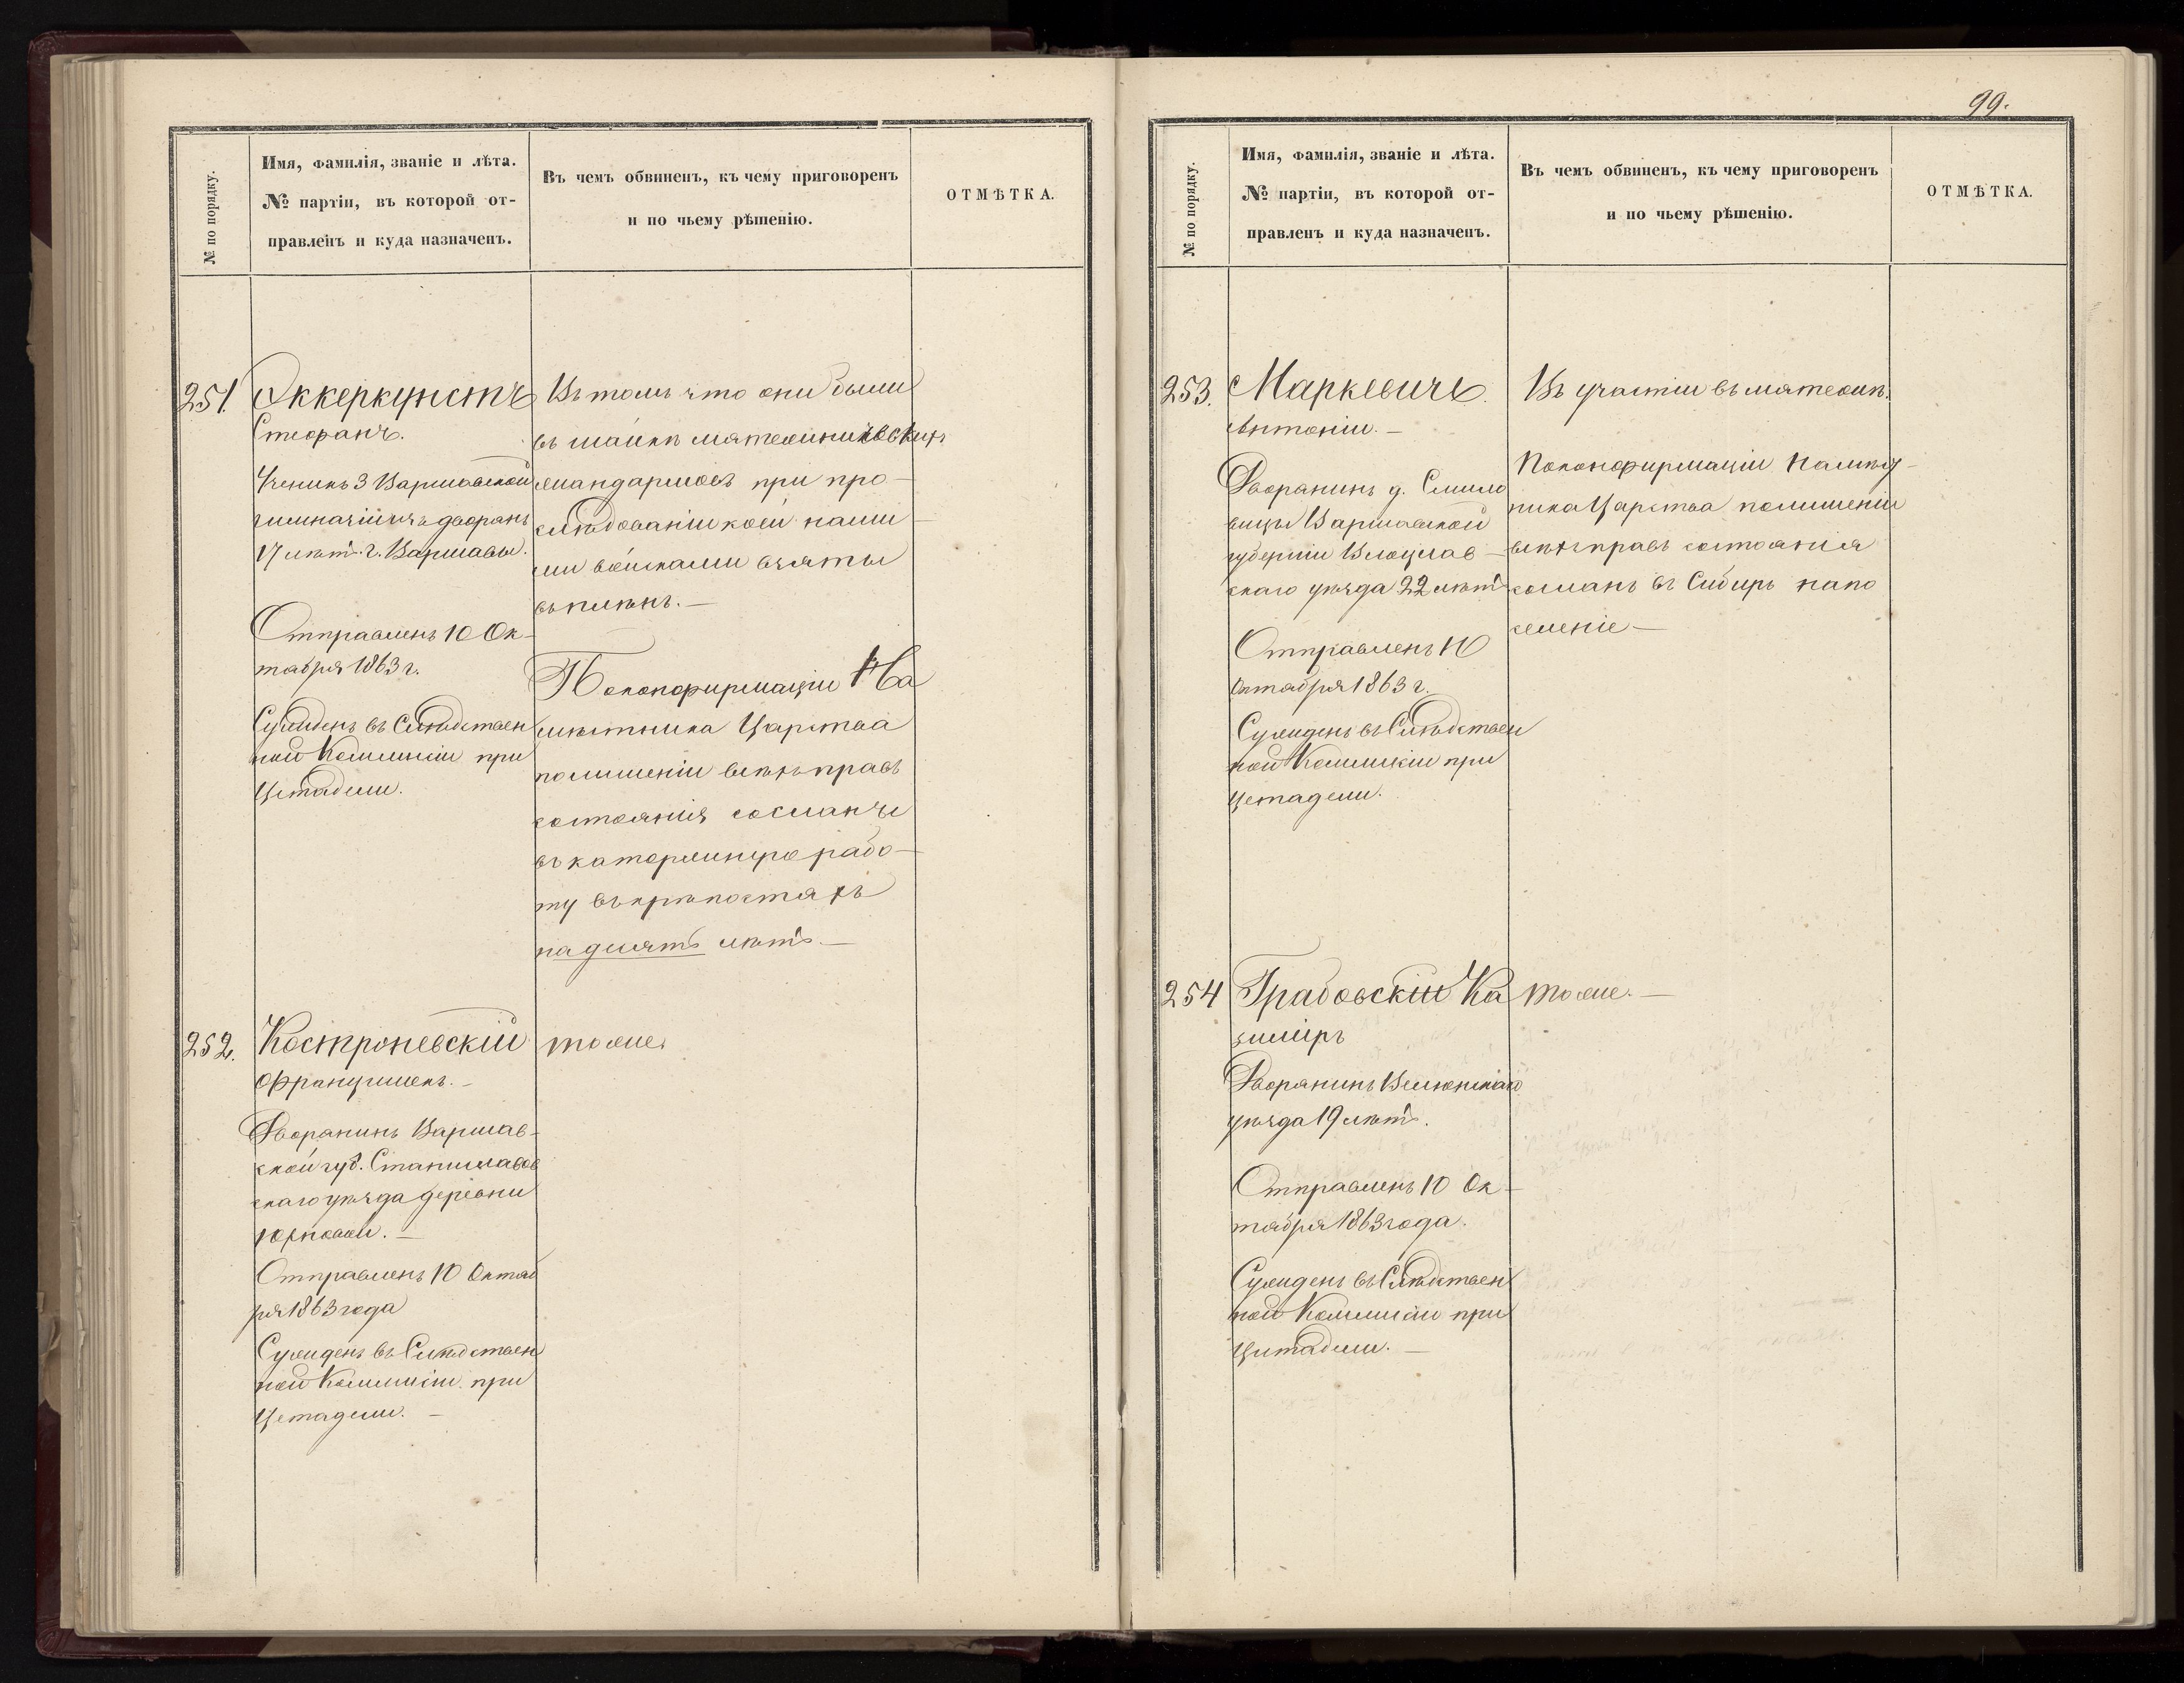 99.
№ по порядку.
Имя, фамилія, званіе и лѣта.
№ партіи, въ которой от-
правленъ и куда назначенъ.
Въ чемъ обвиненъ, къ чему приговоренъ
и по чьему рѣшенію.
ОТМѢТКА.
251.
Эккеркунстъ
Стефанъ.
Ученикъ 3 Варшавской
гимназіи изъ дворянъ
17 лѣтъ. г. Варшавы.
Отправленъ 10 Ок-
тября 1863 г.
Сужденъ въ Слѣдствен
ной Коммисіи при
Цитадели.
Въ томъ что они были
въ шайкѣ мятежническихъ
жандармовъ при про-
слѣдованіи коей наши
ми войсками взяты
въ плѣнъ. —
По конфирмаціи На
мѣстника Царства
по лишеніи всѣхъ правъ
состоянія сосланъ
въ каторжную рабо-
ту въ крѣпостяхъ
на десять лѣтъ. —
252.
Костроневскій
Францишекъ. —
Дворянинъ Варшав-
ской губ. Станиславов
скаго уѣзда деревни
Отправленъ 10 Октяб
ря 1863 года
Сужденъ въ Слѣдствен
ной Коммисіи при
Цетадели. —
тоже.
№ по порядку.
Имя, фамилія, званіе и лѣта.
№ партіи, въ которой от-
правленъ и куда назначенъ.
Въ чемъ обвиненъ, къ чему приговоренъ
и по чьему рѣшенію.
ОТМѢТКА.
253.
Маркевичъ.
Антоній. —
Дворянинъ д. Смило
вицы Варшавской
губерніи Влоцлав-
скаго уѣзда 22 лѣтъ
Отправленъ 10
Октября 1863 г.
Сужденъ въ Слѣдствен
ной Коммисіи при
Цетадели.
Въ участіи въ мятежѣ.
По конфирмаціи Намѣст-
ника Царства по лишеніи
всѣхъ правъ состоянія
сосланъ въ Сибирь на по
селеніе —
254
Грабовскій Ка
зиміръ
Дворянинъ Велюнскаго
уѣзда 19 лѣтъ.
Отправленъ 10 Ок-
тября 1863 года.
Сужденъ въ Слѣдствен
ной Коммисіи при
Цитадели. —
тоже. —